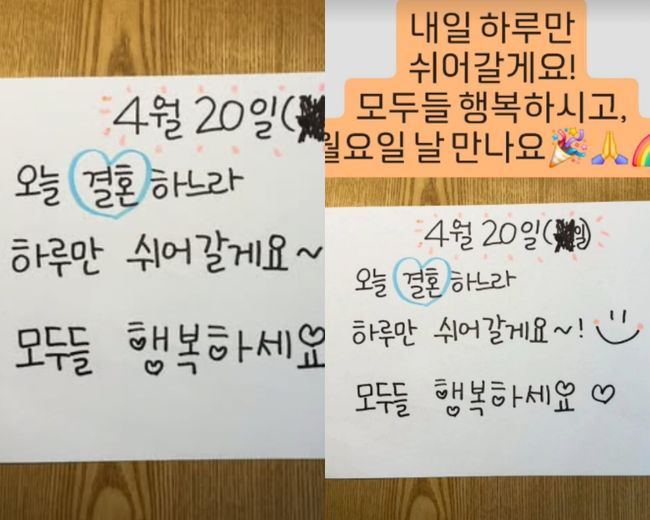 4월 20일(
오늘 결혼 하느라
하루만 쉬어갈게요~
모두들 행복하세요
내일 하루만
쉬어갈게요!
모두들 행복하시고,
월요일 날 만나요🎉🙏🌈
4월 20일(일)
오늘 결혼 하느라
하루만 쉬어갈게요~!
모두들 행복하세요♡